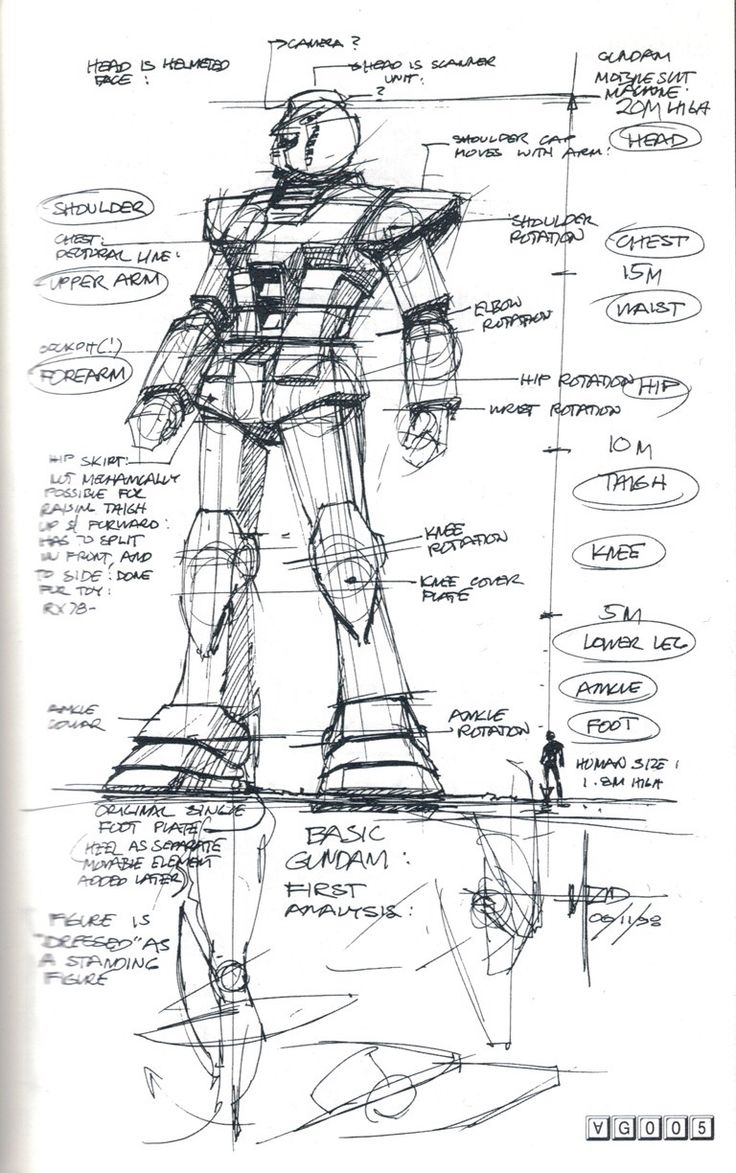 CAMERA ?
HEAD IS HELMETED
FACE :
HEAD IS SCANNER
UNIT :
?
GUNDAM
MOBILE SUIT
MACHINE :
20M HIGH
HEAD
SHOULDER CAP
MOVES WITH ARM :
SHOULDER
CHEST :
PECTORAL LINE :
UPPER ARM
SHOULDER
ROTATION
CHEST
15M
WAIST
ELBOW
ROTATION
COCKPIT (!)
FOREARM
HIP ROTATION
HIP
WRIST ROTATION
10M
HIP SKIRT :
NOT MECHANICALLY
POSSIBLE FOR
RAISING THIGH
UP & FORWARD :
HAS TO SPLIT
IN FRONT, AND
TO SIDE : DONE
FOR TOY :
RX78-
THIGH
KNEE
ROTATION
KNEE
KNEE COVER
PLATE
5M
LOWER LEG
ANKLE
COLLAR
ANKLE
ROTATION
ANKLE
FOOT
HUMAN SIZE :
1.8M HIGH
ORIGINAL SINGLE
FOOT PLATE
(HEEL AS SEPARATE
MOVABLE ELEMENT
ADDED LATER)
BASIC
GUNDAM :
FIRST
ANALYSIS :
FIGURE IS
"DRESSED" AS
A STANDING
FIGURE
∀G005